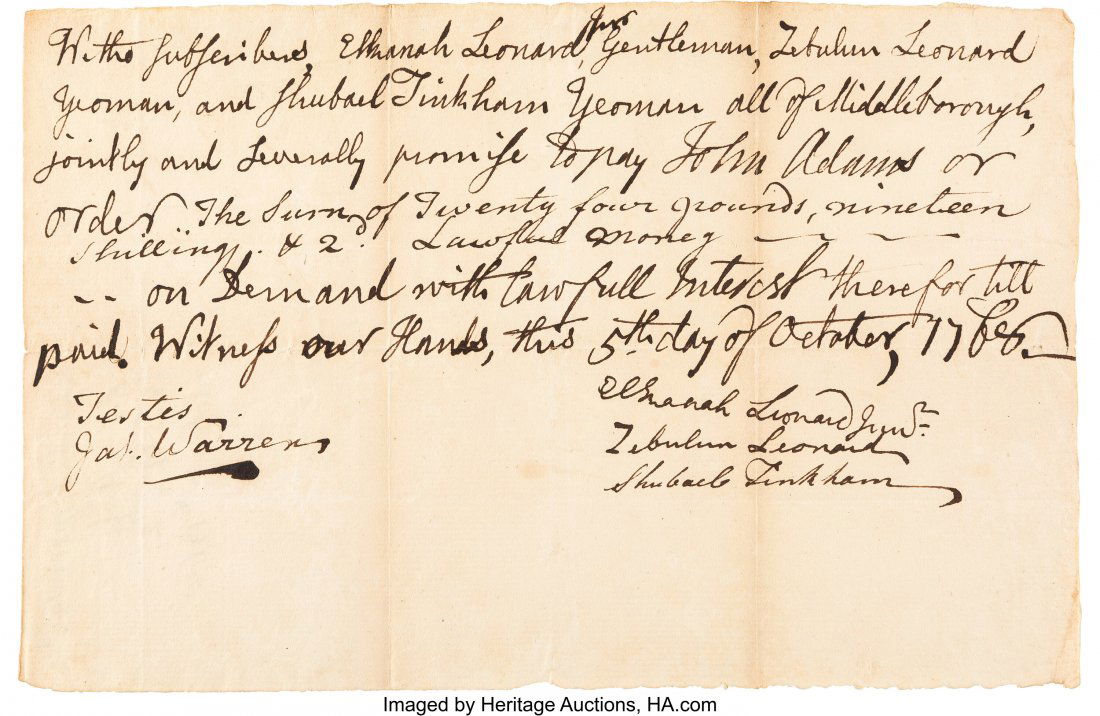 We the subscribers, Elkanah Leonard Junr Gentleman, Zebulun Leonard
Yeoman, and Shubael Tinkham Yeoman all of Middleborough,
jointly and Severally promise to pay John Adams or
order The Sum of Twenty four pounds, nineteen
shilling. & 2d. Lawful money
-- on Demand with lawfull Interest therefor till
paid. Witness our Hands, this 5th day of October, 1768.
Testis
Jas. Warren
Elkanah Leonard Junr.
Zebulun Leonard
Shubael Tinkham
Imaged by Heritage Auctions, HA.com